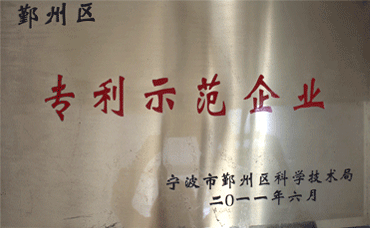 鄞州区
专利示范企业
宁波市鄞州区科学技术局
二〇一一年六月